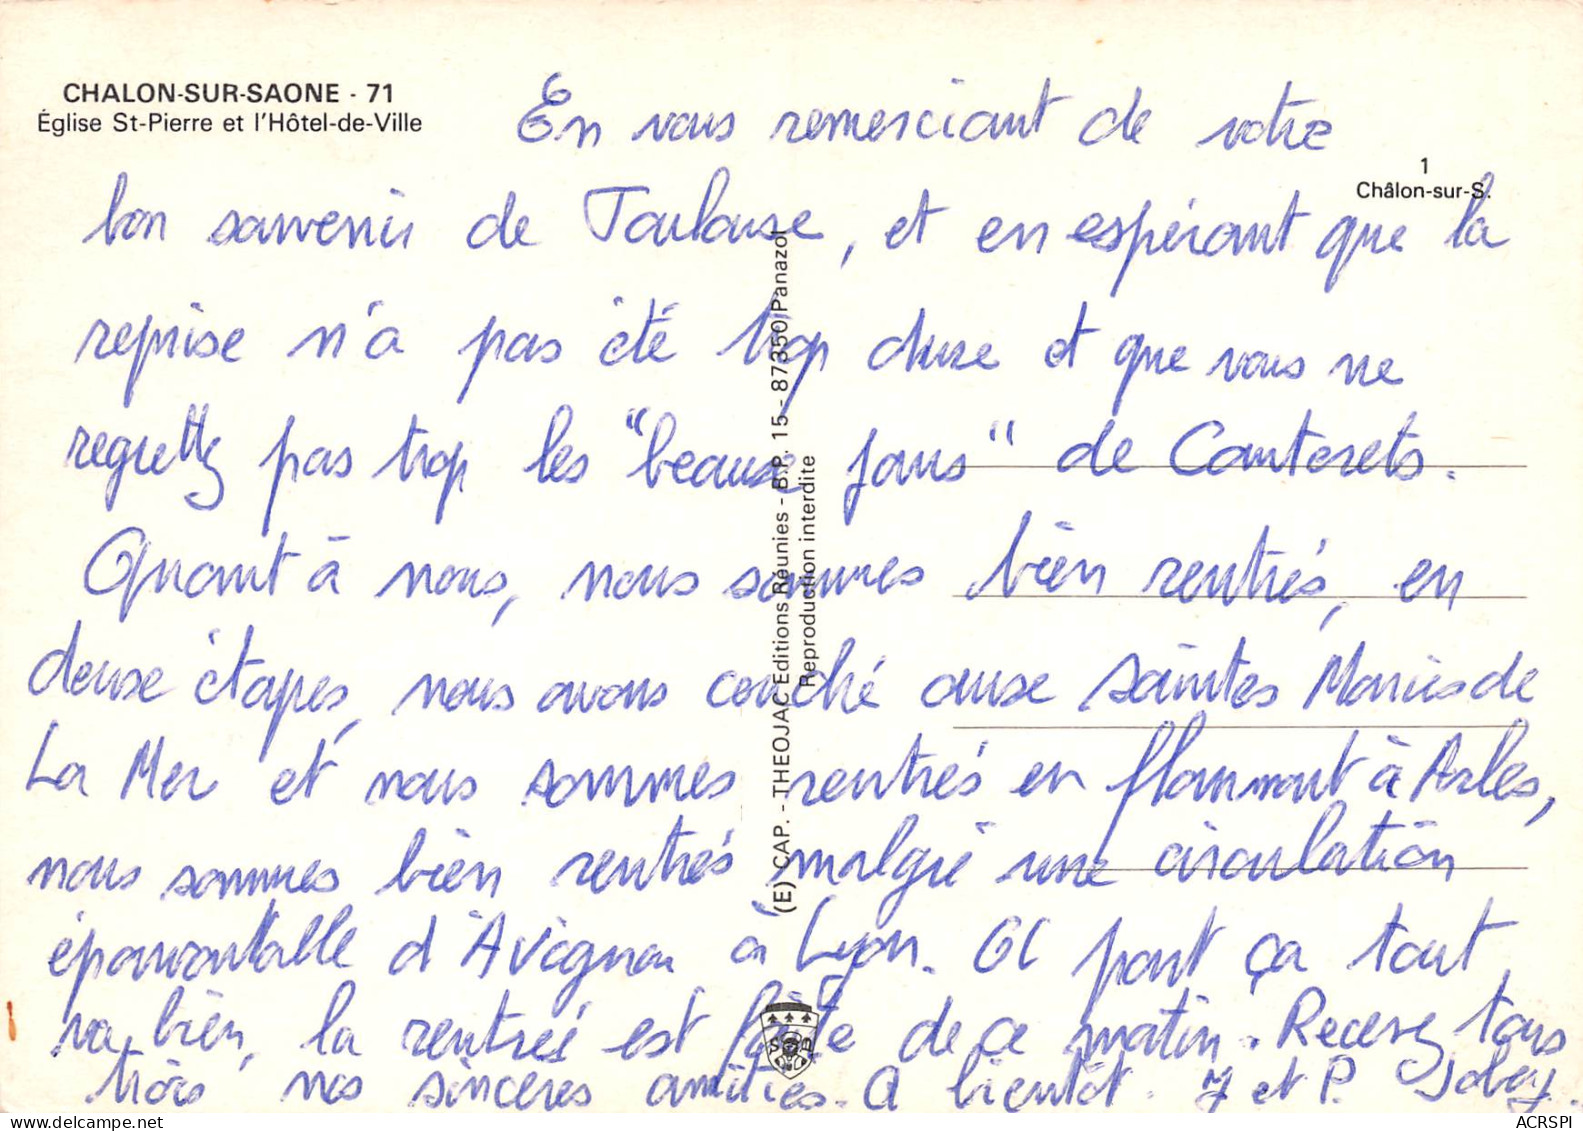 CHALON-SUR-SAONE - 71
Église St-Pierre et l'Hôtel-de-Ville
1
Châlon-sur-S.
En vous remerciant de votre
bon souvenir de Toulouse, et en espérant que la
reprise n'a pas été trop dure et que vous ne
regrettez pas trop les "beaux jours" de Cauterets.
Quant à nous, nous sommes bien rentrés, en
deux étapes, nous avons couché aux Saintes Maries de
La Mer et nous sommes rentrés en flannant à Arles,
nous sommes bien rentrés malgré une circulation
épouvantable d'Avignon à Lyon. Ici part ça tout
va bien, la rentrée est faite de ce matin. Recevez tous
trois nos sincères amitiés. A bientôt. J et P.
(E) CAP. - THEOJAC Editions Réunies - B.P. 15 - 87350 Panazol
Reproduction interdite
ACRSPI